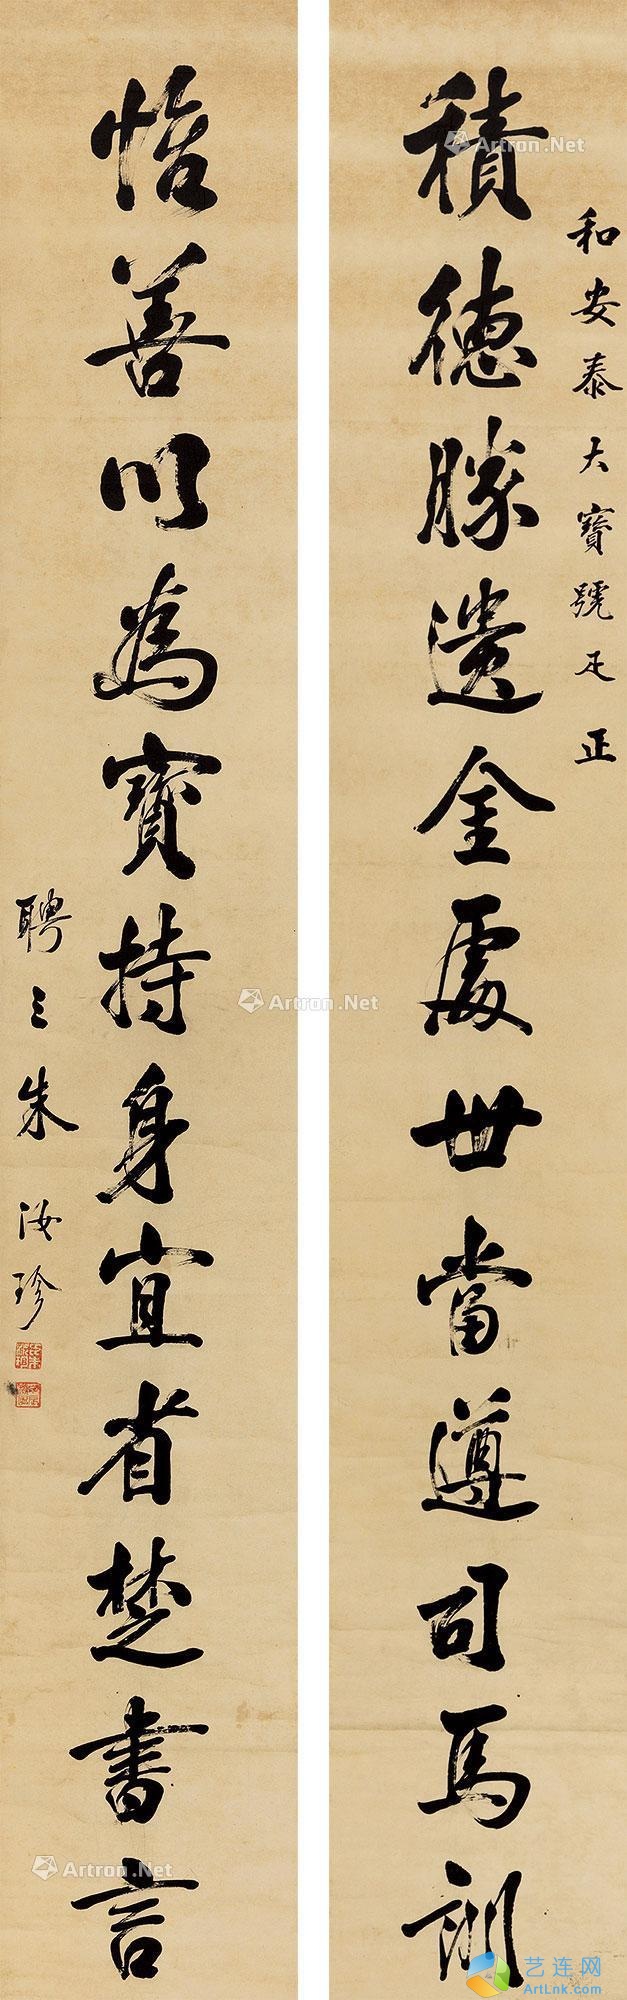 和安泰大寶號疋正
積德勝遺金處世當遵司馬訓
怡善以為寶持身宜省楚書言
聘三朱汝珍
Artron.Net
Artron.Net
Artron.Net
艺连网
ArtLnk.com